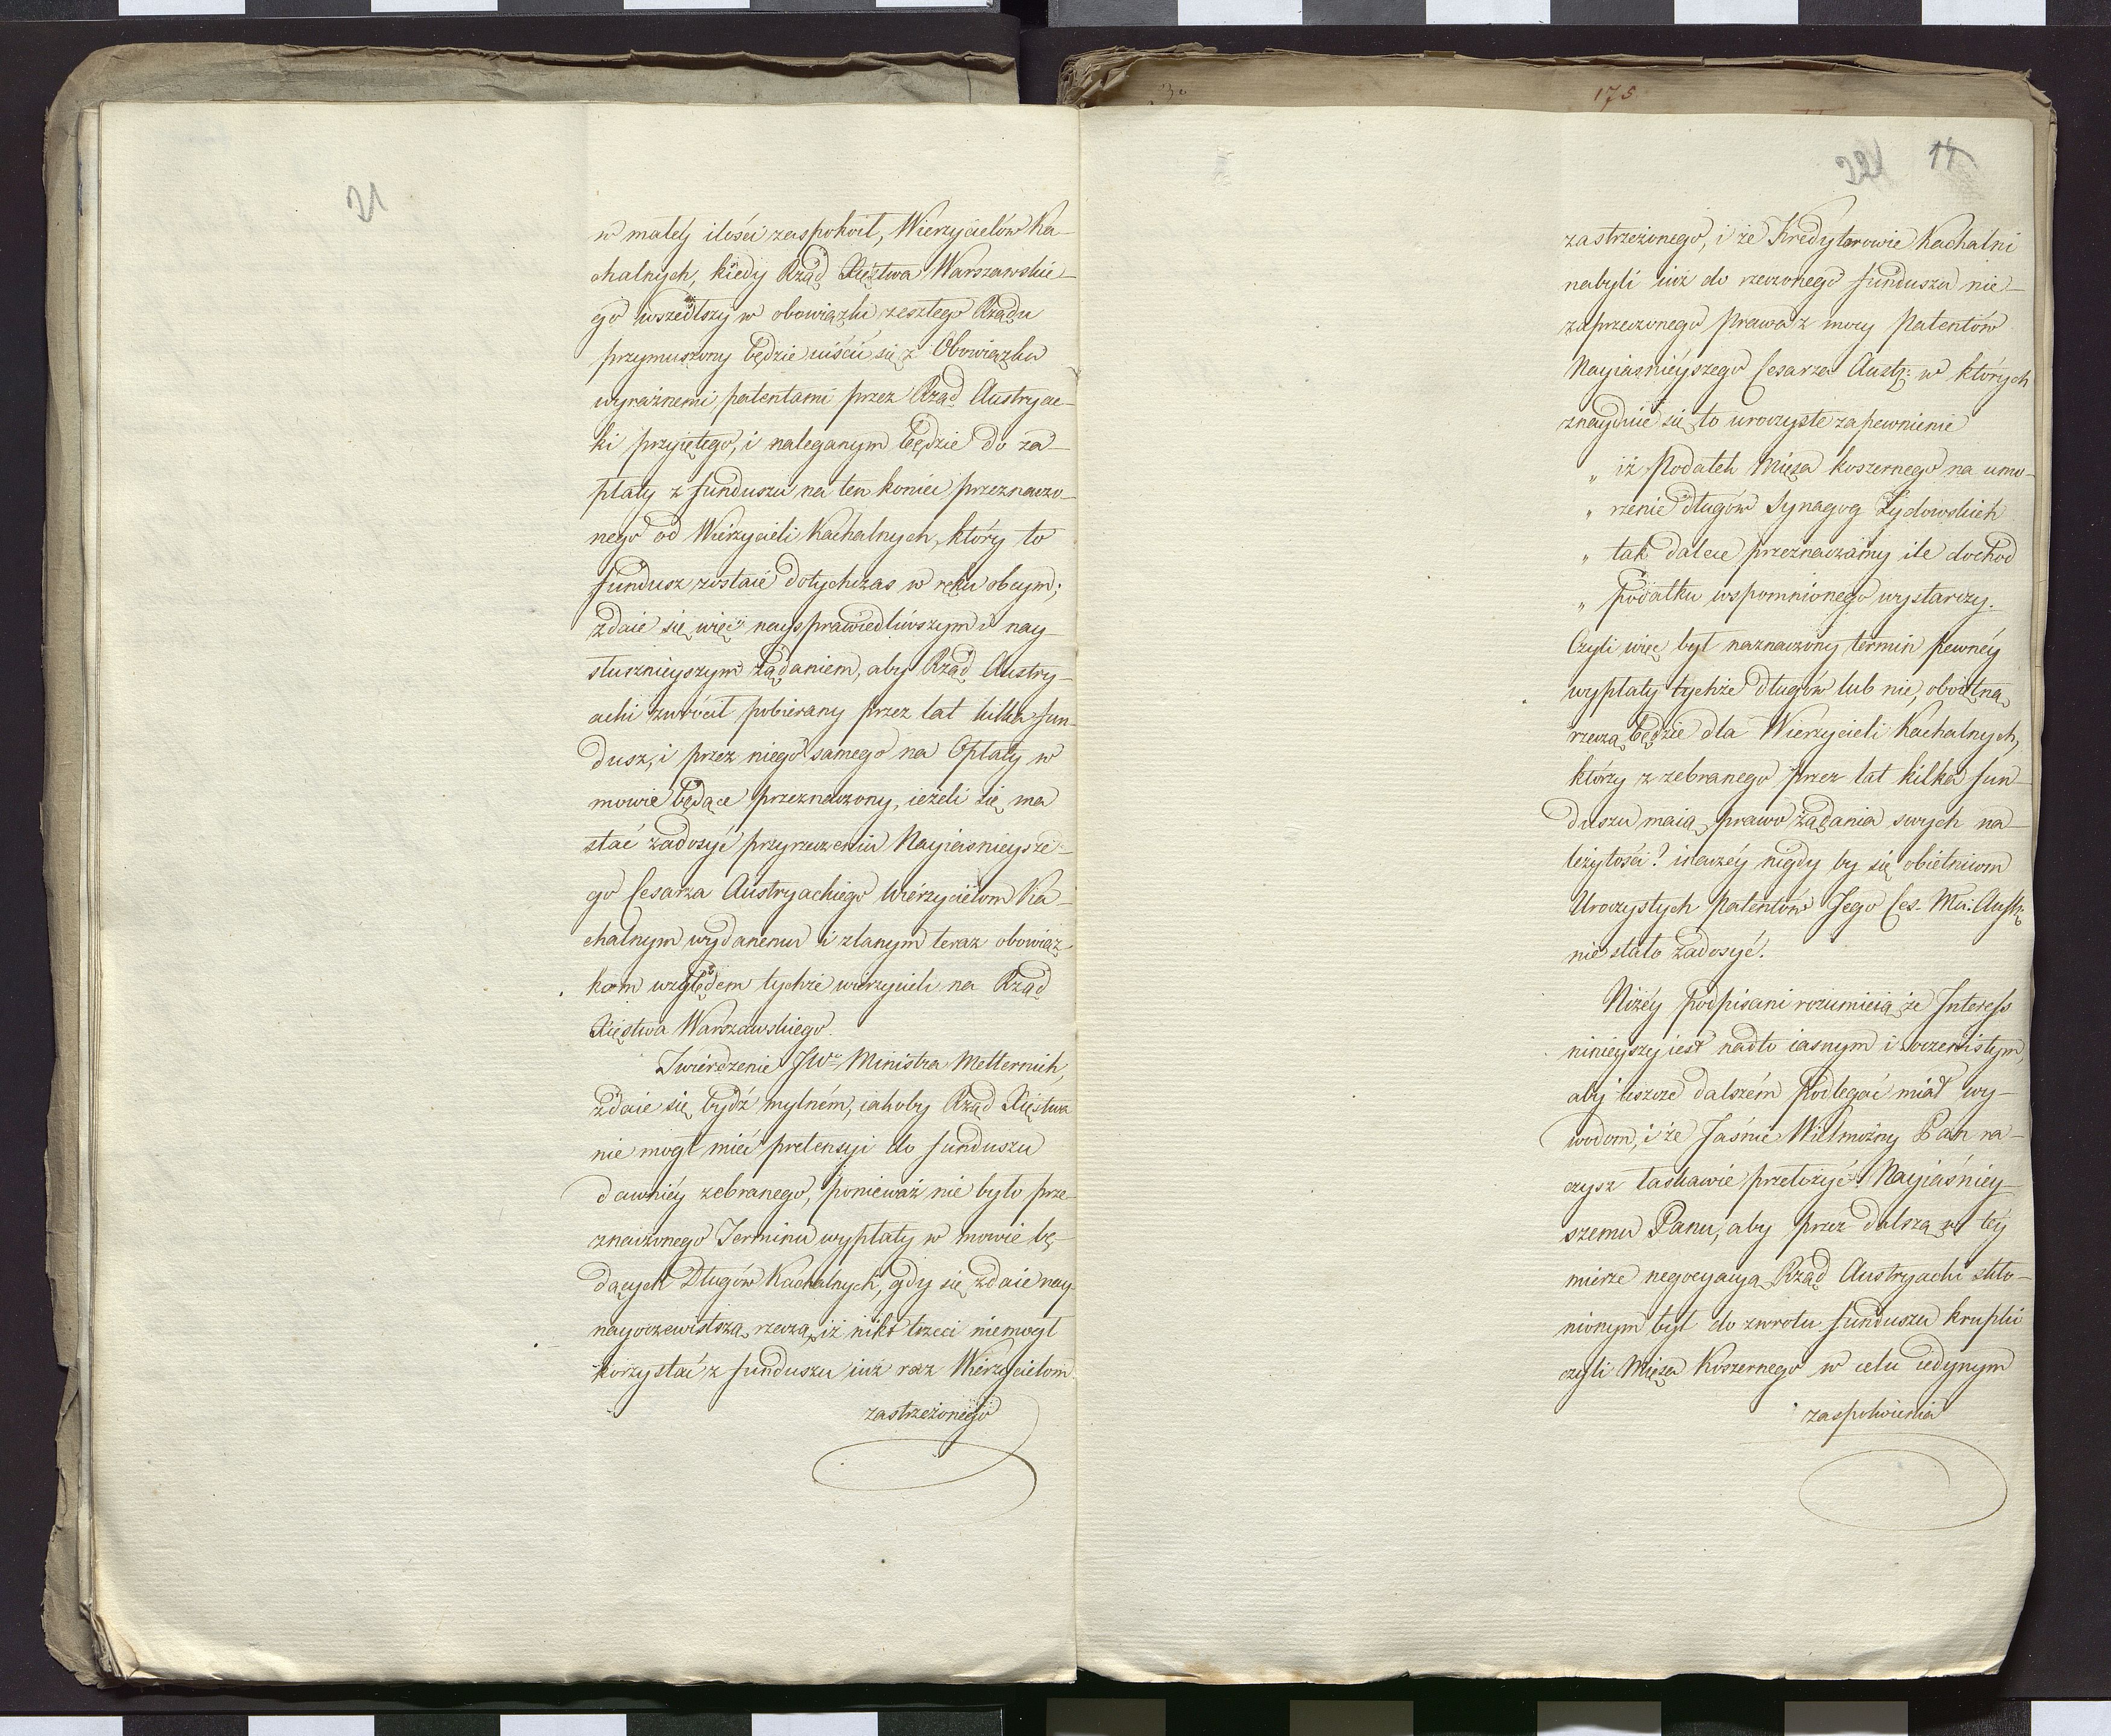 21
w małey ilości zaspokoił, Wierzycielów Ka-
chalnych, kiedy Rząd Xięstwa Warszawskie-
go wszedłszy w obowiązki zeszłego Rządu
przymuszony będzie uiścić się z Obowiązku
wyraźnemi patentami przez Rząd Austryac-
ki przyiętego, i naleganym będzie do za-
płaty z funduszu na ten koniec przeznaczo-
nego od Wierzycieli Kachalnych, który to
fundusz zostaie dotychczas w ręku obcym;
zdaie się więc naysprawiedliwszym i nay-
słusznieyszym żądaniem, aby Rząd Austry-
acki zwrócił pobierany przez lat kilka fun-
dusz, i przez niego samego na Opłaty w
mowie będące przeznaczony, ieżeli się ma
stać zadosyć przyrzeczeniu Nayiasnieysze-
go Cesarza Austryackiego Wierzycielom Ka-
chalnym wydanemu i zlanym teraz obowiąz-
kom względem tychże wierzycieli na Rząd
Xięstwa Warszawskiego.
Twierdzenie JWo Ministra Metternich,
zdaie się bydź mylném, iakoby Rząd Xięstwa
nie mogł mieć pretensyi do funduszu
dawniéy zebranego, ponieważ nie było prze-
znaczonego Terminu wypłaty w mowie bę-
dących Długów Kachalnych, gdy się zdaie nay-
nayoczewistszą rzeczą, iż nikt trzeci niemogł
korzystać z funduszu iuż raz Wierzycielom
zastrzeżonego
175
22 14
zastrzeżonego, i że Kredytorowie Kachalni
nabyli iuż do rzeczonego funduszu nie-
zaprzeczonego prawa z mocy Patentów
Nayiasniéyszego Cesarza Austr: w których
znayduie się to uroczyste zapewnienie
" iż Podatek Mięsa koszernego na umo-
" rzenie długów Synagog Żydowskich
" tak dalece przeznaczamy ile dochod
" podatku wspomnionego wystarczy.
Czyli więc był naznaczony termin pewnéy
wypłaty tychże długów lub nie, oboiętną
rzeczą będzie dla Wierzycieli Kachalnych,
którzy z zebranego przez lat kilka fun-
duszu maią prawo żądania swych na-
leżytości? inaczéy nigdy by się obietnicom
Uroczystych Patentów Jego Ces. Mci: Austr:
nie stało zadosyć.
Niżéy podpisani rozumieią, że Interess
ninieyszy iest nadto iasnym i oczewistym,
aby ieszcze dalszém podlegać miał wy-
wodom, i że Jaśnie Wielmożny Pan ra-
czysz łaskawie przełożyć Nayiaśniey-
szemu Panu, aby przez dalszą w téy
mierze negocyacyą Rząd Austryacki skło-
nionym był do zwrotu funduszu krupki
czyli Mięsa Koszernego w celu iedynym
zaspokoienia